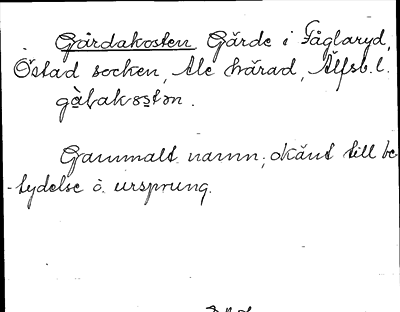 Gärdakosten, Gärde i Fåglaryd,
Östad socken, Ale härad, Älfsb. l.
gàḷakɷstən.
Gammalt namn; okänt till be-
tydelse o. ursprung.